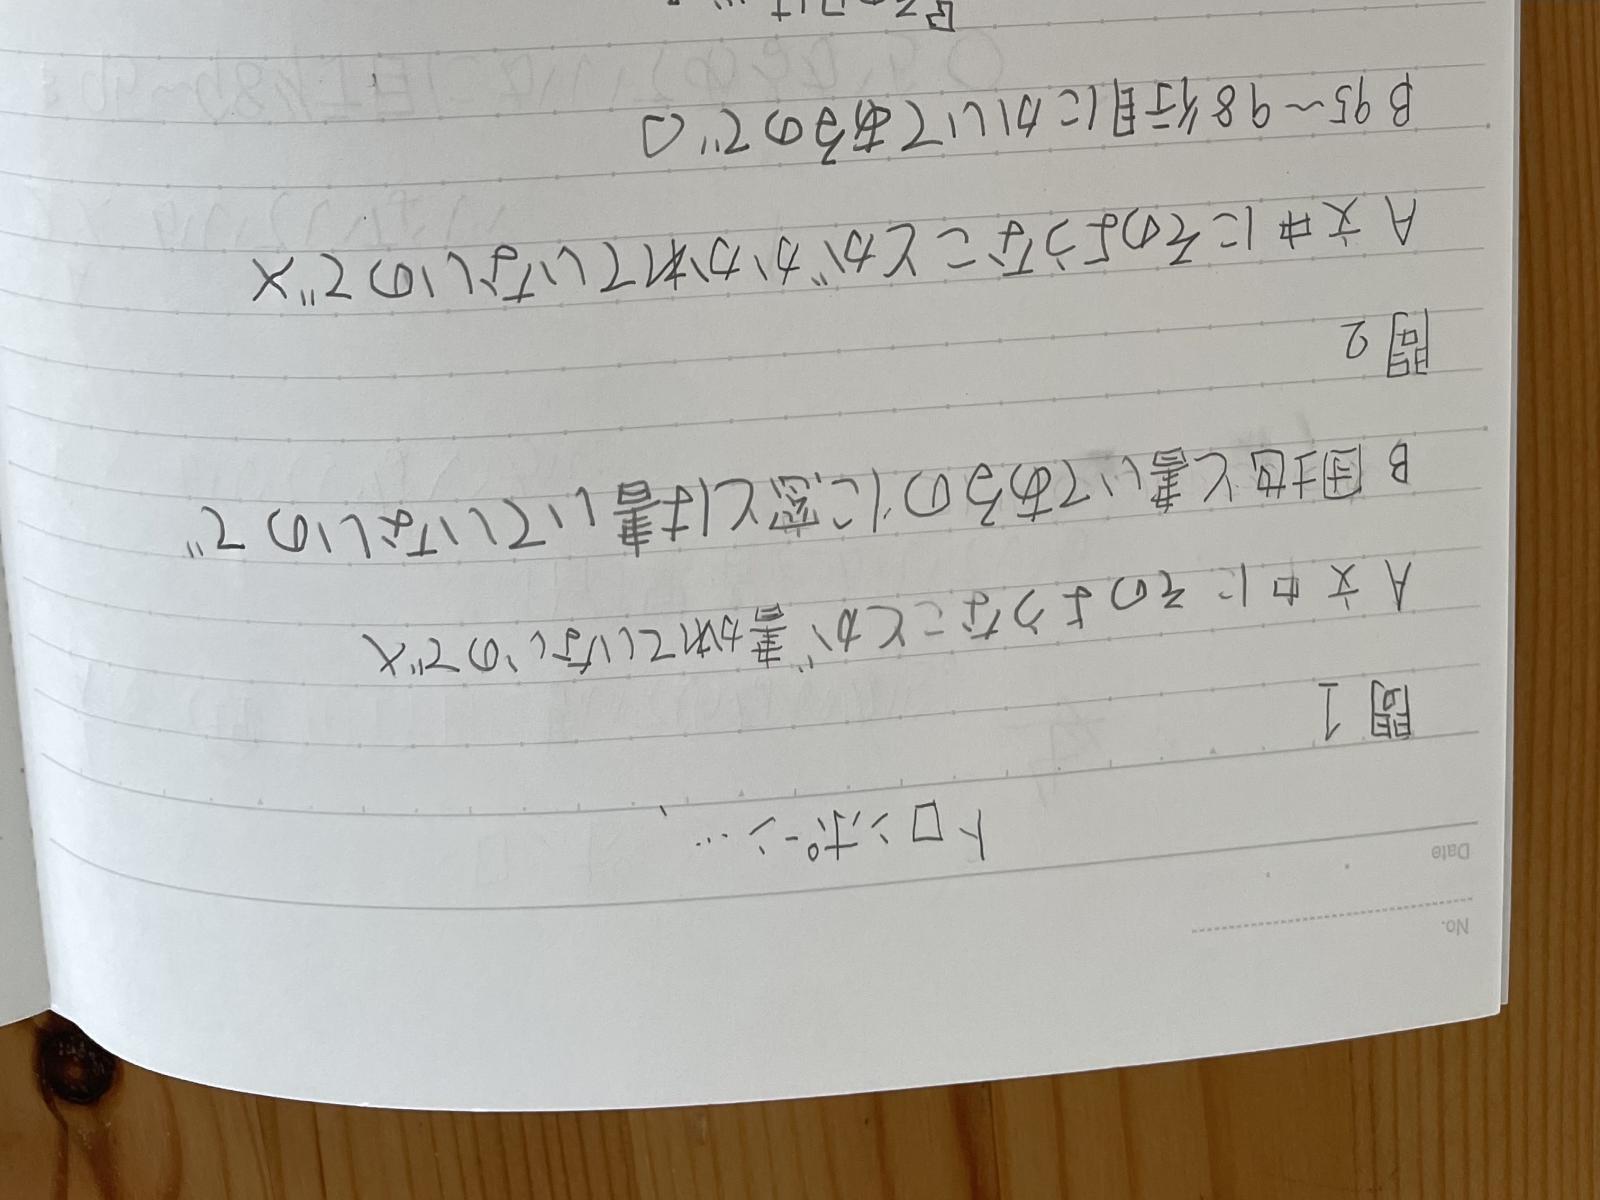 No.
Date
トロンボーン…
問1
A 文中にそのようなことが書かれていないので×
B 団地と書いてあるのに窓とは書いていないので
問2
A 文中にそのようなことがかかれていないので×
B 95〜98行目にかいてあるので○